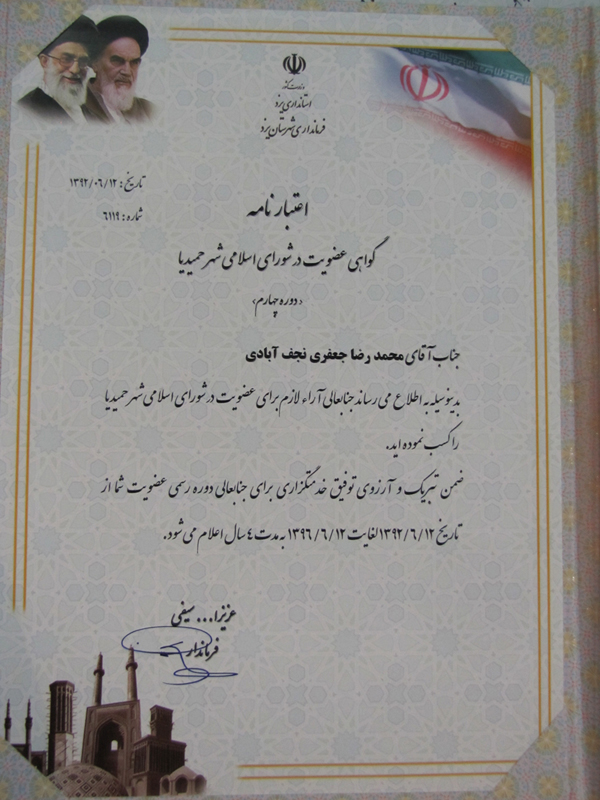 وزارت کشور
استانداری یزد
فرمانداری شهرستان یزد
تاریخ: ۱۳۹۲/۰۶/۱۲
شماره: ۶۱۱۹
اعتبار نامه
گواهی عضویت در شورای اسلامی شهر حمیدیا
«دوره چهارم»
جناب آقای محمد رضا جعفری نجف آبادی
بدینوسیله به اطلاع می رساند جنابعالی آراء لازم برای عضویت در شورای اسلامی شهر حمیدیا
را کسب نموده اید.
ضمن تبریک و آرزوی توفیق خدمتگزاری برای جنابعالی دوره رسمی عضویت شما از
تاریخ ۱۳۹۲/۶/۱۲ لغایت ۱۳۹۶/۶/۱۲ به مدت ٤ سال اعلام می شود.
عزیزا... سیفی
فرماندار